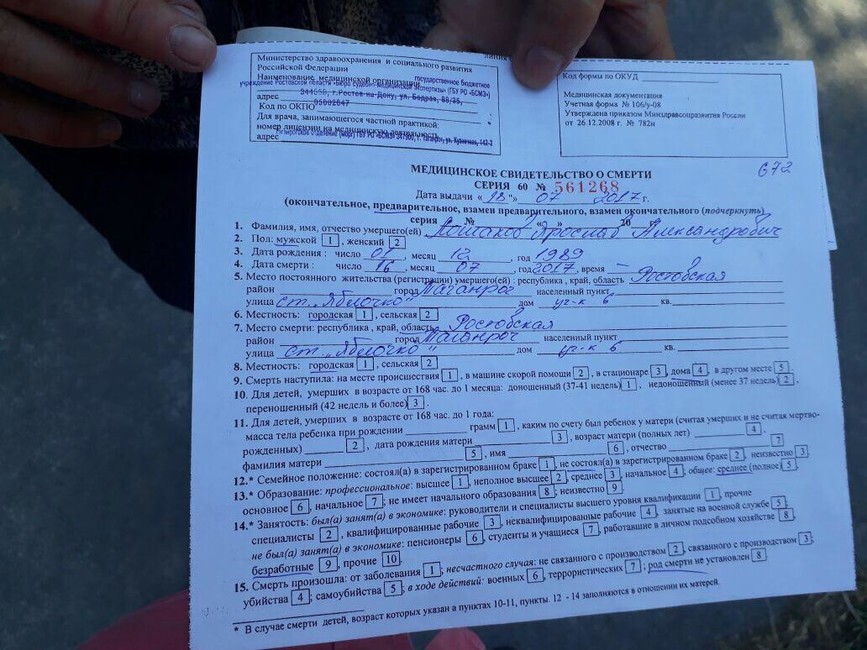 Министерство здравоохранения и социального развития
Российской Федерации
Наименование медицинской организации государственное бюджетное
учреждение Ростовской области «Бюро судебно-медицинской экспертизы» (ГБУ РО «БСМЭ»)
адрес г.Ростов-на-Дону, ул.
Код по ОКПО
Для врача, занимающегося частной практикой:
номер лицензии на медицинскую деятельность
адрес
Код формы по ОКУД
Медицинская документация
Учетная форма № 106/у-08
Утверждена приказом Минздравсоцразвития России
от 26.12.2008 г. № 782н
672
МЕДИЦИНСКОЕ СВИДЕТЕЛЬСТВО О СМЕРТИ
СЕРИЯ 60 № 561268
Дата выдачи «18"» 07 2017 г.
(окончательное, предварительное, взамен предварительного, взамен окончательного (подчеркнуть)
серия №
1. Фамилия, имя, отчество умершего(ей) Ярослав Александрович
2. Пол: мужской 1, женский 2
3. Дата рождения: число месяц 12, год 1989
4. Дата смерти: число 16, месяц 07, год 2017, время –
5. Место постоянного жительства (регистрации) умершего(ей): республика, край, область Ростовская
район город Таганрог населенный пункт
улица ст. „Яблочко" дом уч-к 6 кв.
6. Местность: городская 1, сельская 2
7. Место смерти: республика, край, область Ростовская
район город Таганрог населенный пункт
улица ст. „Яблочко" дом уч-к 6 кв.
8. Местность: городская 1, сельская 2
9. Смерть наступила: на месте происшествия 1, в машине скорой помощи 2, в стационаре 3, дома 4, в другом месте 5.
10. Для детей, умерших в возрасте от 168 час. до 1 месяца: доношенный (37-41 недель) 1, недоношенный (менее 37 недель) 2,
переношенный (42 недель и более) 3.
11. Для детей, умерших в возрасте от 168 час. до 1 года:
масса тела ребенка при рождении грамм 1, каким по счету был ребенок у матери (считая умерших и не считая мертво-
рожденных) 2, дата рождения матери 3, возраст матери (полных лет) 4,
фамилия матери 5, имя 6, отчество 7
12.* Семейное положение: состоял(а) в зарегистрированном браке 1, не состоял(а) в зарегистрированном браке 2, неизвестно 3.
13.* Образование: профессиональное: высшее 1, неполное высшее 2, среднее 3, начальное 4; общее: среднее (полное) 5,
основное 6, начальное 7; не имеет начального образования 8; неизвестно 9.
14.* Занятость: был(а) занят(а) в экономике: руководители и специалисты высшего уровня квалификации 1, прочие
специалисты 2, квалифицированные рабочие 3, неквалифицированные рабочие 4, занятые на военной службе 5;
не был(а) занят(а) в экономике: пенсионеры 6, студенты и учащиеся 7, работавшие в личном подсобном хозяйстве 8,
безработные 9, прочие 10.
15. Смерть произошла: от заболевания 1; несчастного случая: не связанного с производством 2, связанного с производством 3;
убийства 4; самоубийства 5; в ходе действий: военных 6, террористических 7; род смерти не установлен 8.
* В случае смерти детей, возраст которых указан в пунктах 10-11, пункты. 12 - 14 заполняются в отношении их матерей.